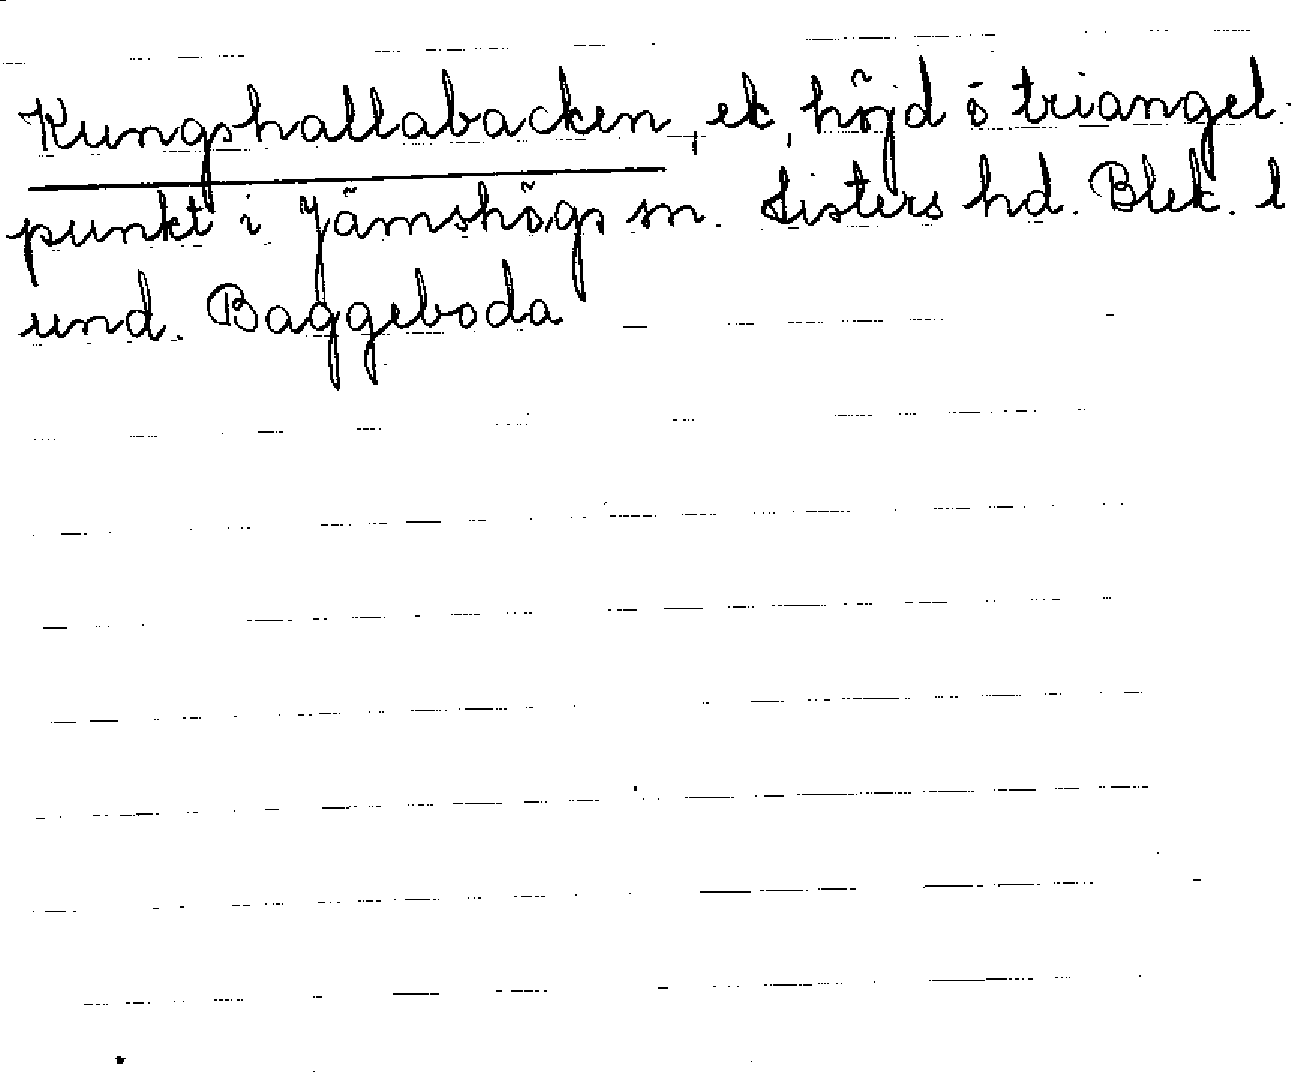 Kungshallabacken, ek, höjd o triangel-
punkt i Jämshögs sn. Listers hd. Blek. l
und. Baggeboda